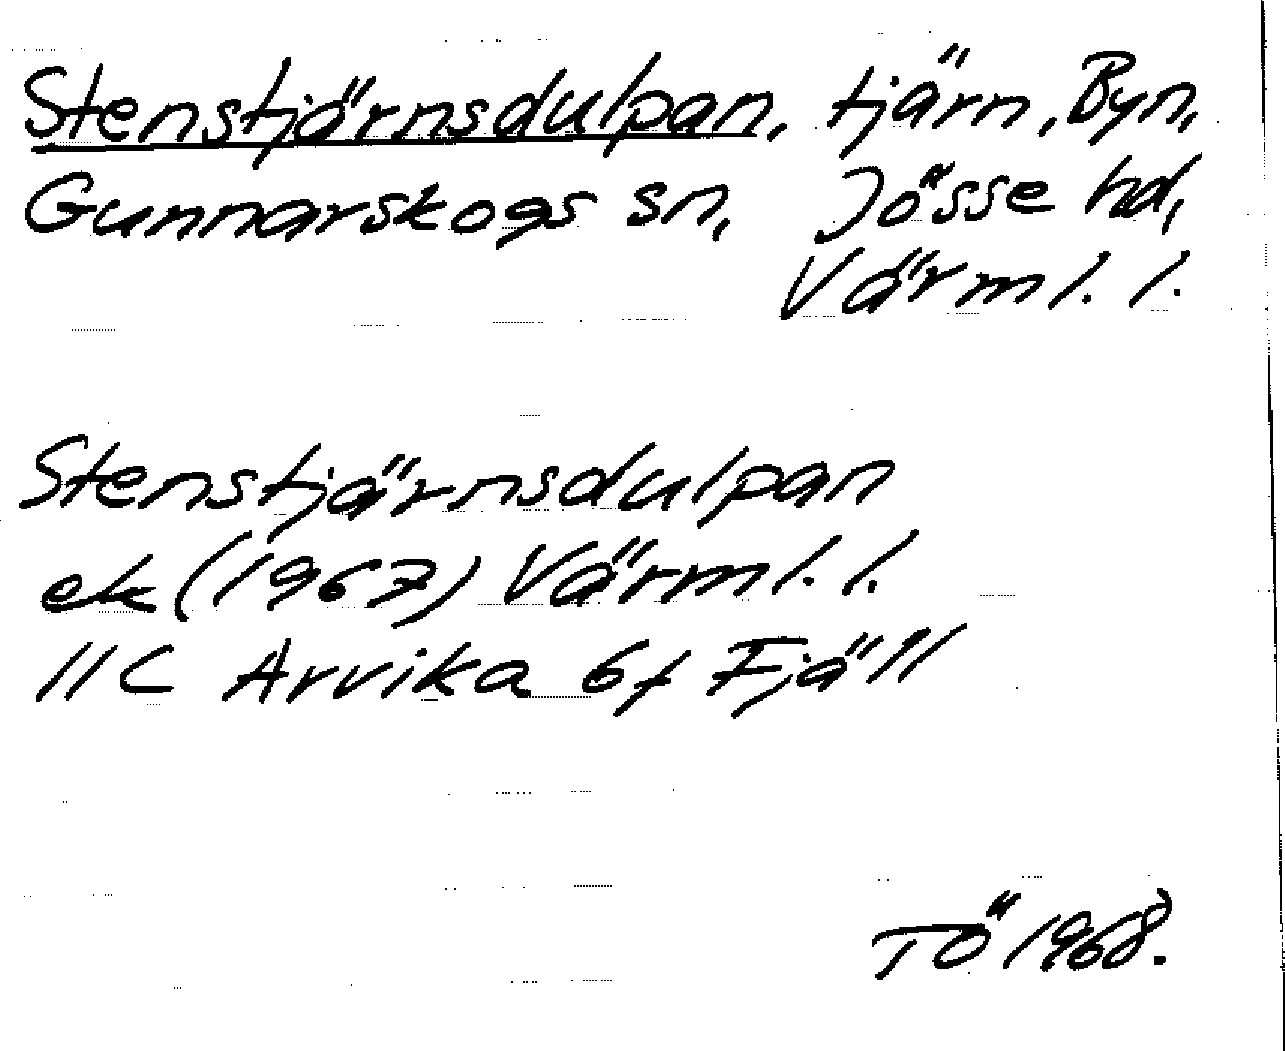 Stenstjärnsdulpan, tjärn, Byn,
Gunnarskogs sn, Jösse hd,
Värml. l.
Stenstjärnsdulpan
ek (1967) Värml. l.
11C Arvika 6f Fjäll
TÖ 1968.